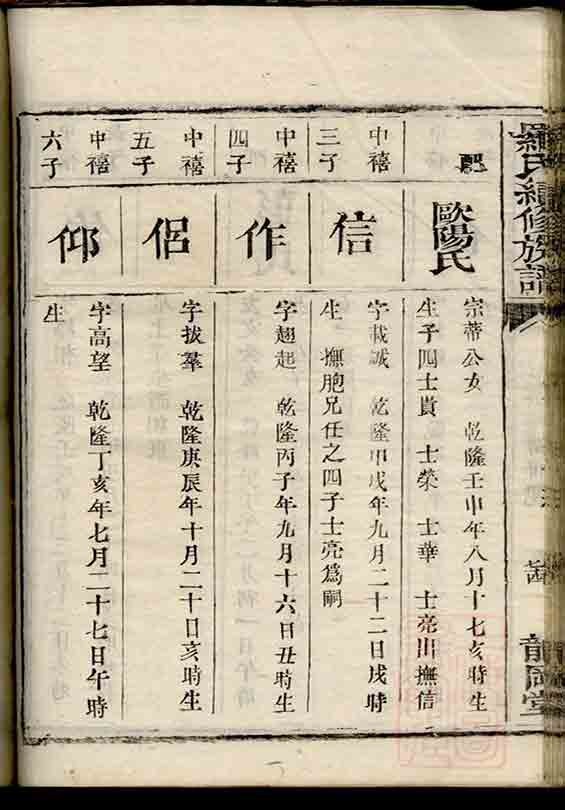 羅氏續修族譜
龍岡堂
配
歐陽氏
宗蒂公女 乾隆壬申年八月十七亥時生
生子四士貴 士榮 士華 士亮出撫信
中禧
三子
信
字載誠 乾隆甲戌年九月二十二日戌時
生 撫胞兄任之四子士亮為嗣
中禧
四子
作
字翹起 乾隆丙子年九月十六日丑時生
中禧
五子
侶
字拔羣 乾隆庚辰年十月二十日亥時生
中禧
六子
仰
字高望 乾隆丁亥年七月二十七日午時
生